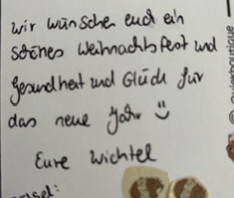 wir wünschen euch ein
schönes Weihnachtsfest und
Gesundheit und Glück für
das neue Jahr :)
Eure Wichtel